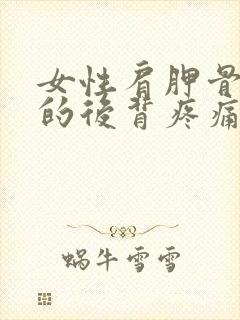 女性肩胛骨
的後背疼痛
蝸牛雪雪